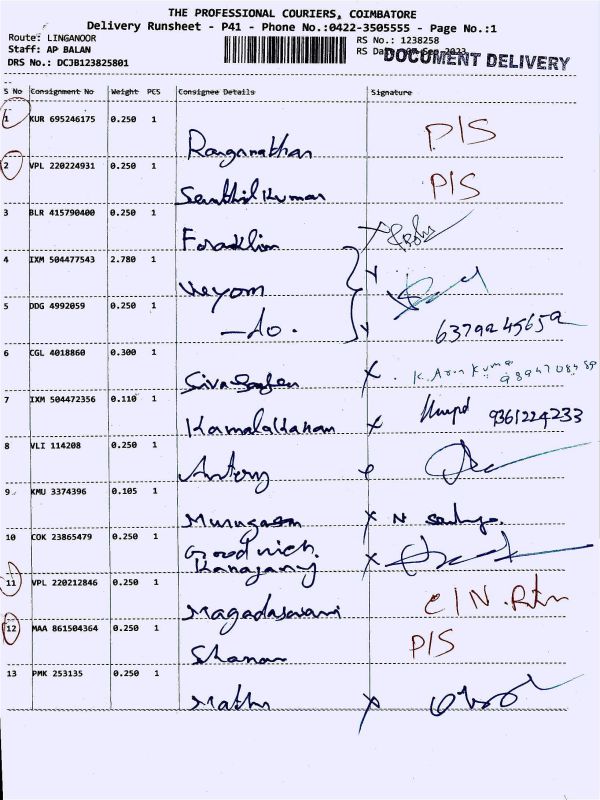 THE PROFESSIONAL COURIERS, COIMBATORE
Delivery Runsheet - P41 - Phone No.:0422-3505555 - Page No.:1
Route: LINGANOOR
Staff: AP BALAN
DRS No.: DCJB123825801
RS No.: 1238258
RS Date
DOCUMENT DELIVERY
S No Consignment No Weight PCS Consignee Details Signature
1 KUR 695246175 0.250 1 P/S
Ranganathan
2 VPL 220224931 0.250 1 P/S
Senthil Kumar
3 BLR 415790400 0.250 1
Franklin
4 IXM 504477543 2.780 1
5 DDG 4992059 0.250 1
-do.
6379245652
6 CGL 4018860 0.300 1
x K. Arun Kumar
7 IXM 504472356 0.110 1
Kamalakanan x 9361224233
8 VLI 114208 0.250 1
Antony
9 KMU 3374396 0.105 1
Murugasan x N
10 COK 23865479 0.250 1
Good rich. x
11 VPL 220212846 0.250 1
12 MAA 861504364 0.250 1 P/S
13 PMK 253135 0.250 1
x